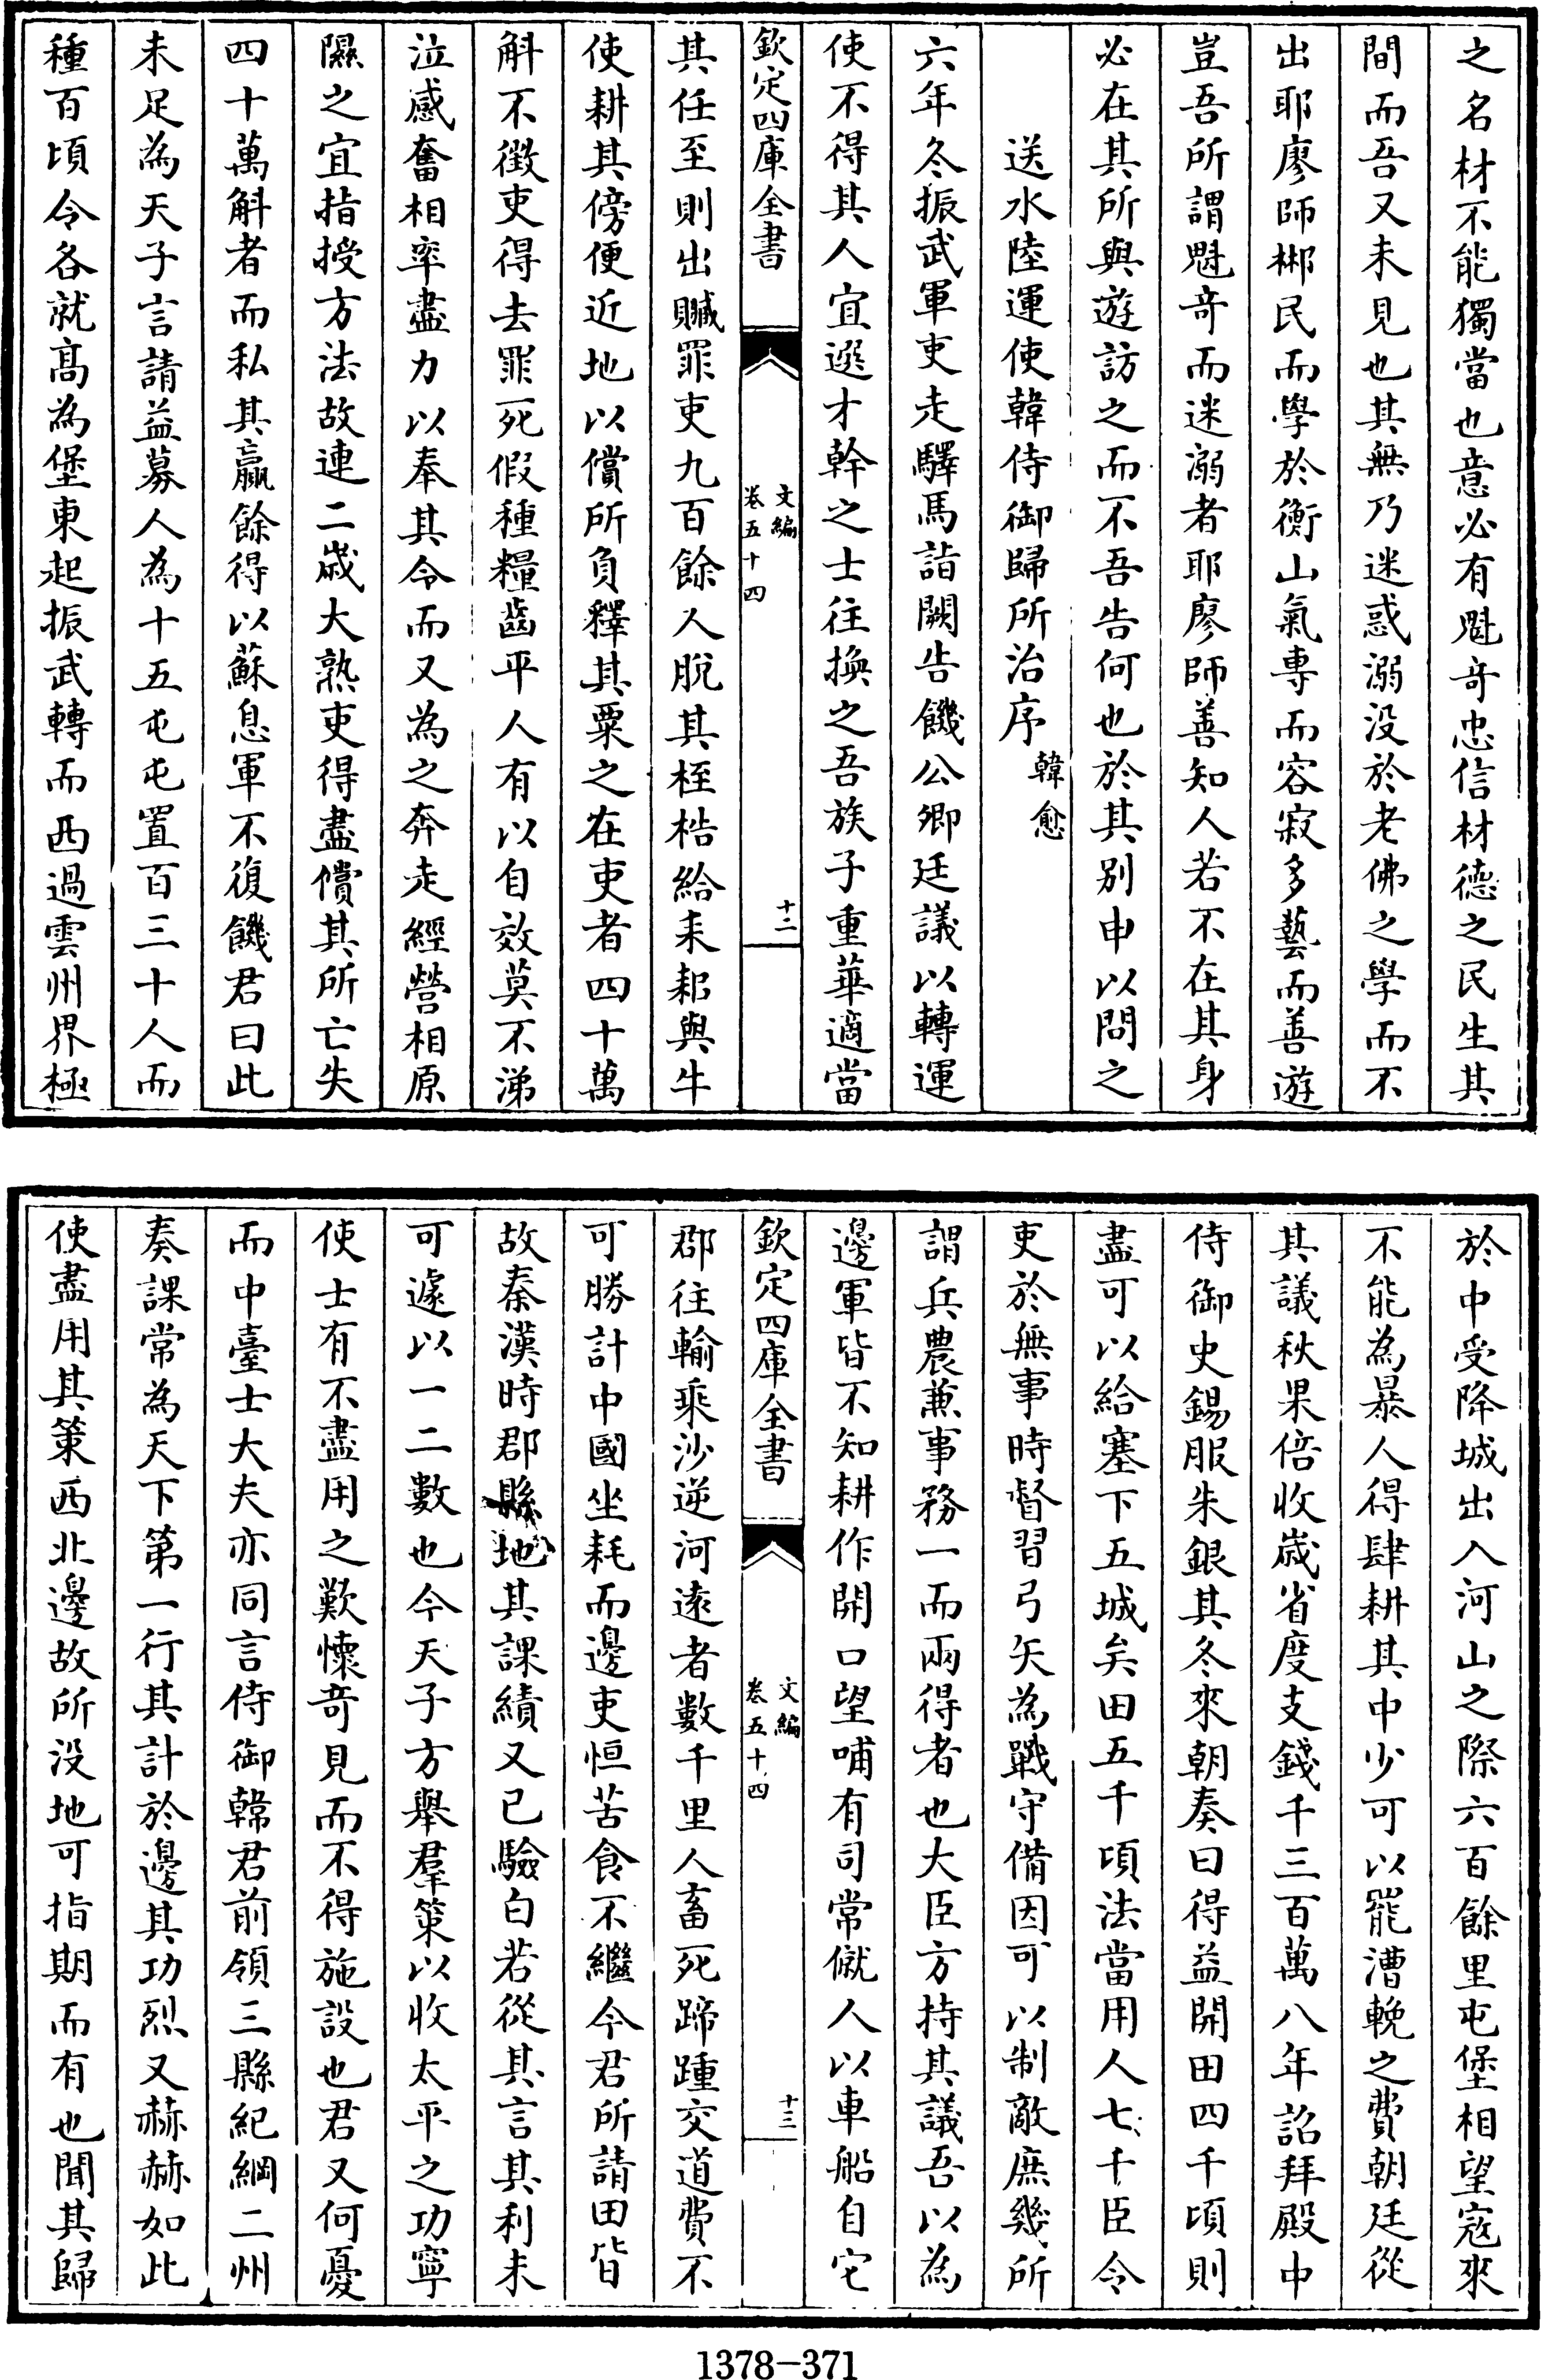 之名材不能獨當也意必有魁竒忠信材德之民生其
間而吾又未見也其無乃迷惑溺没於老佛之學而不
出耶廖師郴民而學於衡山氣專而容寂多藝而善遊
豈吾所謂魁竒而迷溺者耶廖師善知人若不在其身
必在其所與遊訪之而不吾告何也於其别申以問之
送水陸運使韓侍御歸所治序韓愈
六年冬振武軍吏走驛馬詣闕告饑公卿廷議以轉運
使不得其人宜選才幹之士往換之吾族子重華適當
欽定四庫全書
文編
卷五十四
十二
其任至則出贓罪吏九百餘人脱其桎梏給耒耜與牛
使耕其傍便近地以償所負釋其粟之在吏者四十萬
斛不徴吏得去罪死假種糧齒平人有以自效莫不涕
泣感奮相率盡力以奉其令而又為之奔走經營相原
隰之宜指授方法故連二歲大熟吏得盡償其所亡失
四十萬斛者而私其贏餘得以蘇息軍不復饑君曰此
未足為天子言請益募人為十五屯屯置百三十人而
種百頃令各就髙為堡東起振武轉而西過雲州界極
於中受降城出入河山之際六百餘里屯堡相望寇來
不能為暴人得肆耕其中少可以罷漕輓之費朝廷從
其議秋果倍收歲省度支錢千三百萬八年詔拜殿中
侍御史錫服朱銀其冬來朝奏曰得益開田四千頃則
盡可以給塞下五城矣田五千頃法當用人七千臣令
吏於無事時督習弓矢為戰守備因可以制敵庶幾所
謂兵農兼事務一而兩得者也大臣方持其議吾以為
邊軍皆不知耕作開口望哺有司常僦人以車船自它
欽定四庫全書
文編
卷五十四
十三
郡往輸乘沙逆河逺者數千里人畜死蹄踵交道費不
可勝計中國坐耗而邊吏恒苦食不繼今君所請田皆
故秦漢時郡縣地其課績又已驗白若從其言其利未
可遽以一二數也今天子方舉羣策以收太平之功寧
使士有不盡用之歎懷竒見而不得施設也君又何憂
而中臺士大夫亦同言侍御韓君前領三縣紀綱二州
奏課常為天下第一行其計於邊其功烈又赫赫如此
使盡用其策西北邊故所没地可指期而有也聞其歸
1378-371